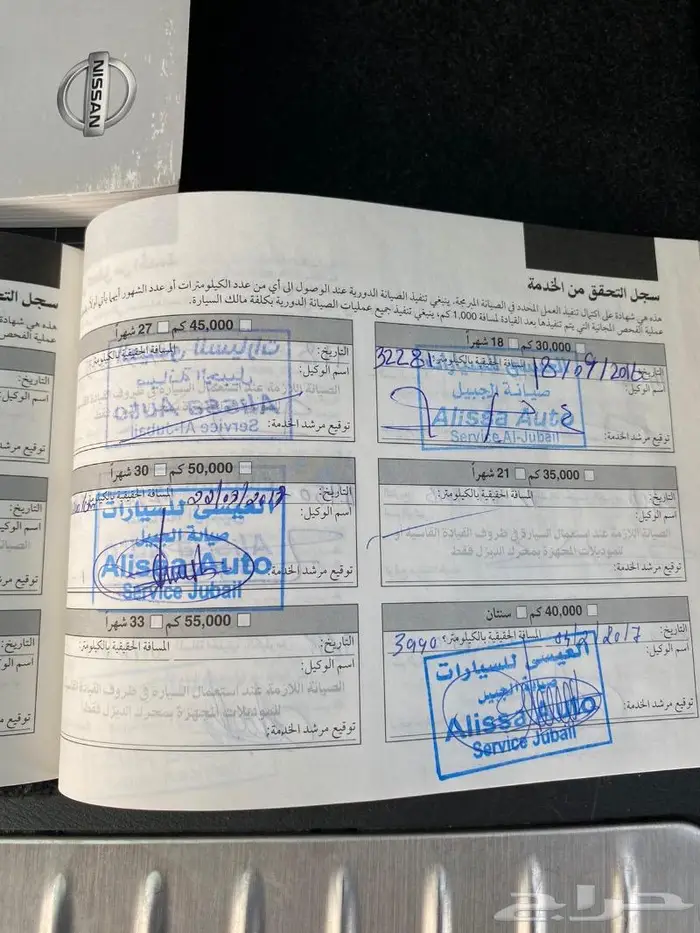 NISSAN
سجل التحقق من الخدمة
هذه هي شهادة على اكتمال تنفيذ العمل المحدد في الصيانة المبرمجة. ينبغي تنفيذ الصيانة الدورية عند الوصول الى أي من عدد الكيلومترات أو عدد الشهور أيهما يأتي أولا.
عملية الفحص المجانية التي يتم تنفيذها بعد القيادة لمسافة 1,000 كم، ينبغي تنفيذ جميع عمليات الصيانة الدورية بكلفة مالك السيارة.
30,000 كم 18 شهراً
التاريخ: 18/09/2016 المسافة الحقيقية بالكيلومتر: 32281
اسم الوكيل:
صيانة الجبيل
Alissa Auto
توقيع مرشد الخدمة:
Service Al-Jubail
35,000 كم 21 شهراً
التاريخ: المسافة الحقيقية بالكيلومتر:
اسم الوكيل:
الصيانة اللازمة عند استعمال السيارة في ظروف القيادة القاسية أو
للموديلات المجهزة بمحرك الديزل فقط
توقيع مرشد الخدمة:
40,000 كم سنتان
التاريخ: 2017 المسافة الحقيقية بالكيلومتر:
اسم الوكيل:
العيسى للسيارات
صيانة الجبيل
Alissa Auto
Service Jubail
توقيع مرشد الخدمة:
45,000 كم 27 شهراً
التاريخ: المسافة الحقيقية بالكيلومتر:
اسم الوكيل:
توقيع مرشد الخدمة:
50,000 كم 30 شهراً
التاريخ: 22/07/2017 المسافة الحقيقية بالكيلومتر:
اسم الوكيل:
العيسى للسيارات
صيانة الجبيل
Alissa Auto
Service Jubail
توقيع مرشد الخدمة:
55,000 كم 33 شهراً
التاريخ: المسافة الحقيقية بالكيلومتر:
اسم الوكيل:
الصيانة اللازمة عند استعمال السيارة في ظروف القيادة
للموديلات المجهزة بمحرك الديزل فقط
توقيع مرشد الخدمة:
حراج